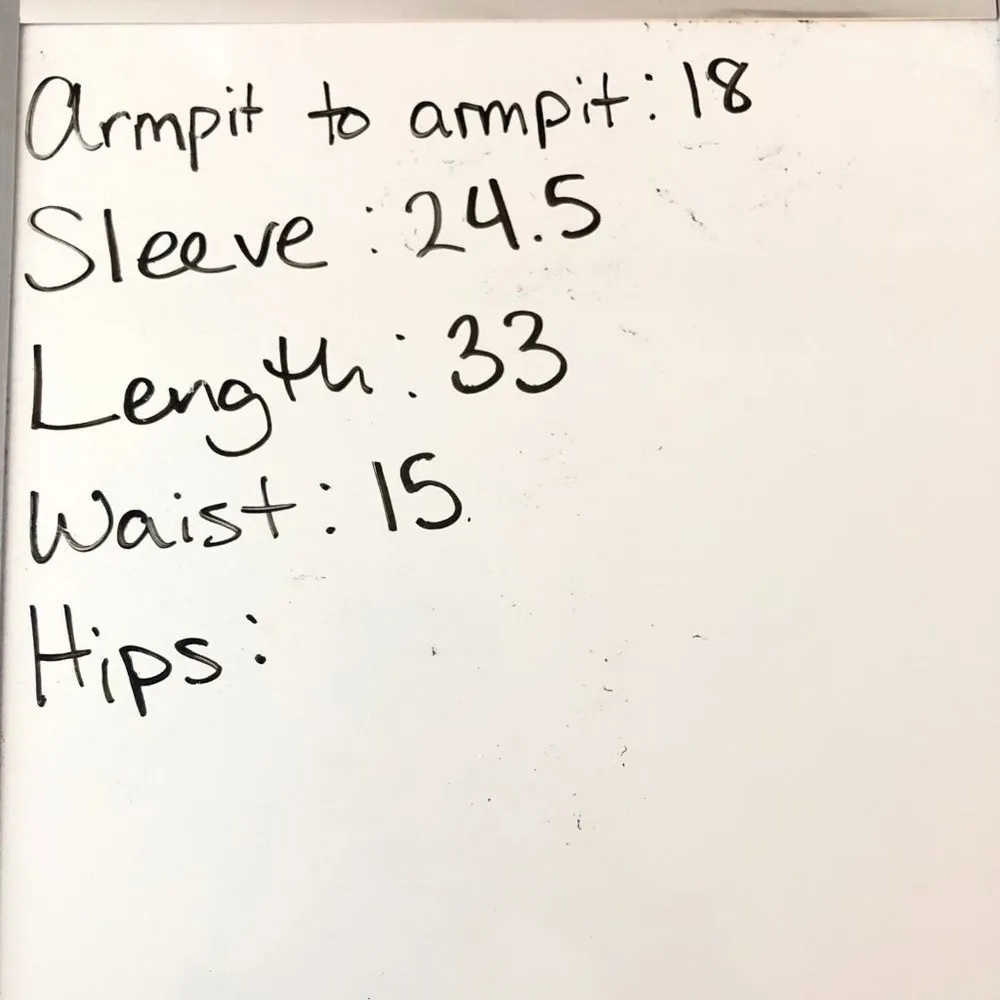 Armpit to armpit: 18
Sleeve: 24.5
Length: 33
Waist: 15
Hips: